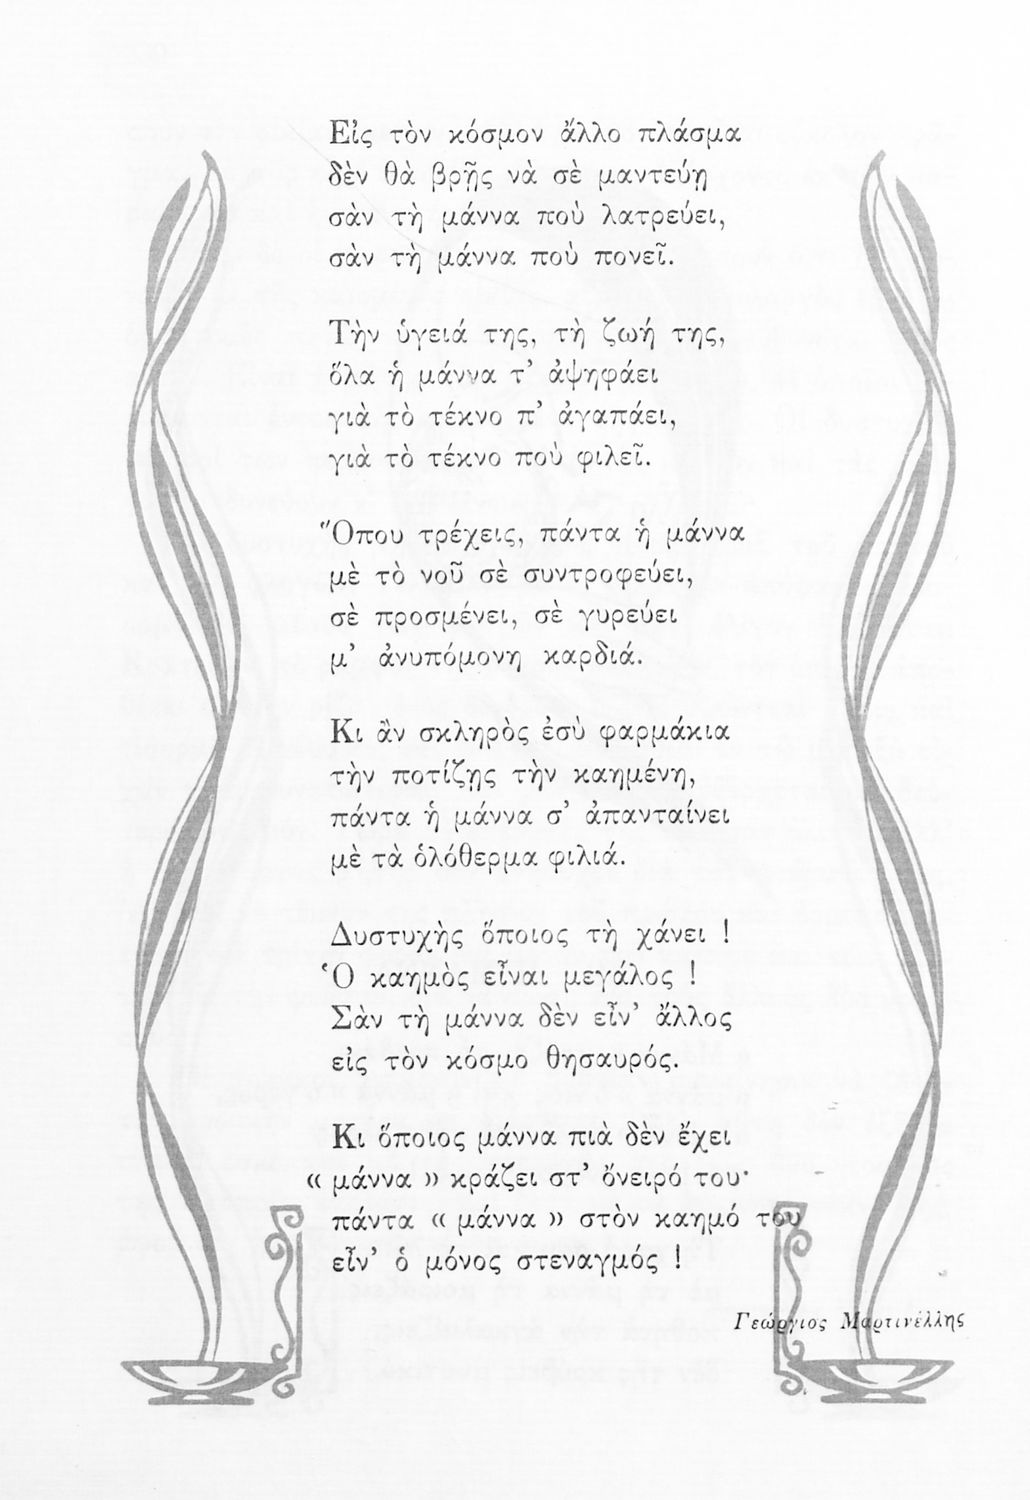 Εἰς τὸν κόσμον ἄλλο πλάσμα
δὲν θὰ βρῇς νὰ σὲ μαντεύῃ
σὰν τὴ μάννα ποὺ λατρεύει,
σὰν τὴ μάννα ποὺ πονεῖ.
Τὴν ὑγειά της, τὴ ζωή της,
ὅλα ἡ μάννα τ’ ἀψηφάει
γιὰ τὸ τέκνο π’ ἀγαπάει,
γιὰ τὸ τέκνο ποὺ φιλεῖ.
Ὅπου τρέχεις, πάντα ἡ μάννα
μὲ τὸ νοῦ σὲ συντροφεύει,
σὲ προσμένει, σὲ γυρεύει
μ’ ἀνυπόμονη καρδιά.
Κι ἂν σκληρὸς ἐσὺ φαρμάκια
τὴν ποτίζῃς τὴν καημένη,
πάντα ἡ μάννα σ’ ἀπανταίνει
μὲ τὰ ὁλόθερμα φιλιά.
Δυστυχὴς ὅποιος τὴ χάνει !
Ὁ καημὸς εἶναι μεγάλος !
Σὰν τὴ μάννα δὲν εἶν’ ἄλλος
εἰς τὸν κόσμο θησαυρός.
Κι ὅποιος μάννα πιὰ δὲν ἔχει
« μάννα » κράζει στ’ ὄνειρό του·
πάντα « μάννα » στὸν καημό του
εἶν’ ὁ μόνος στεναγμός !
Γεώργιος Μαρτινέλλης